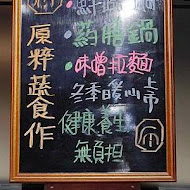 原粹蔬食作
藥膳鍋
味噌拉麵
冬季暖心上市
健康養生
無負担